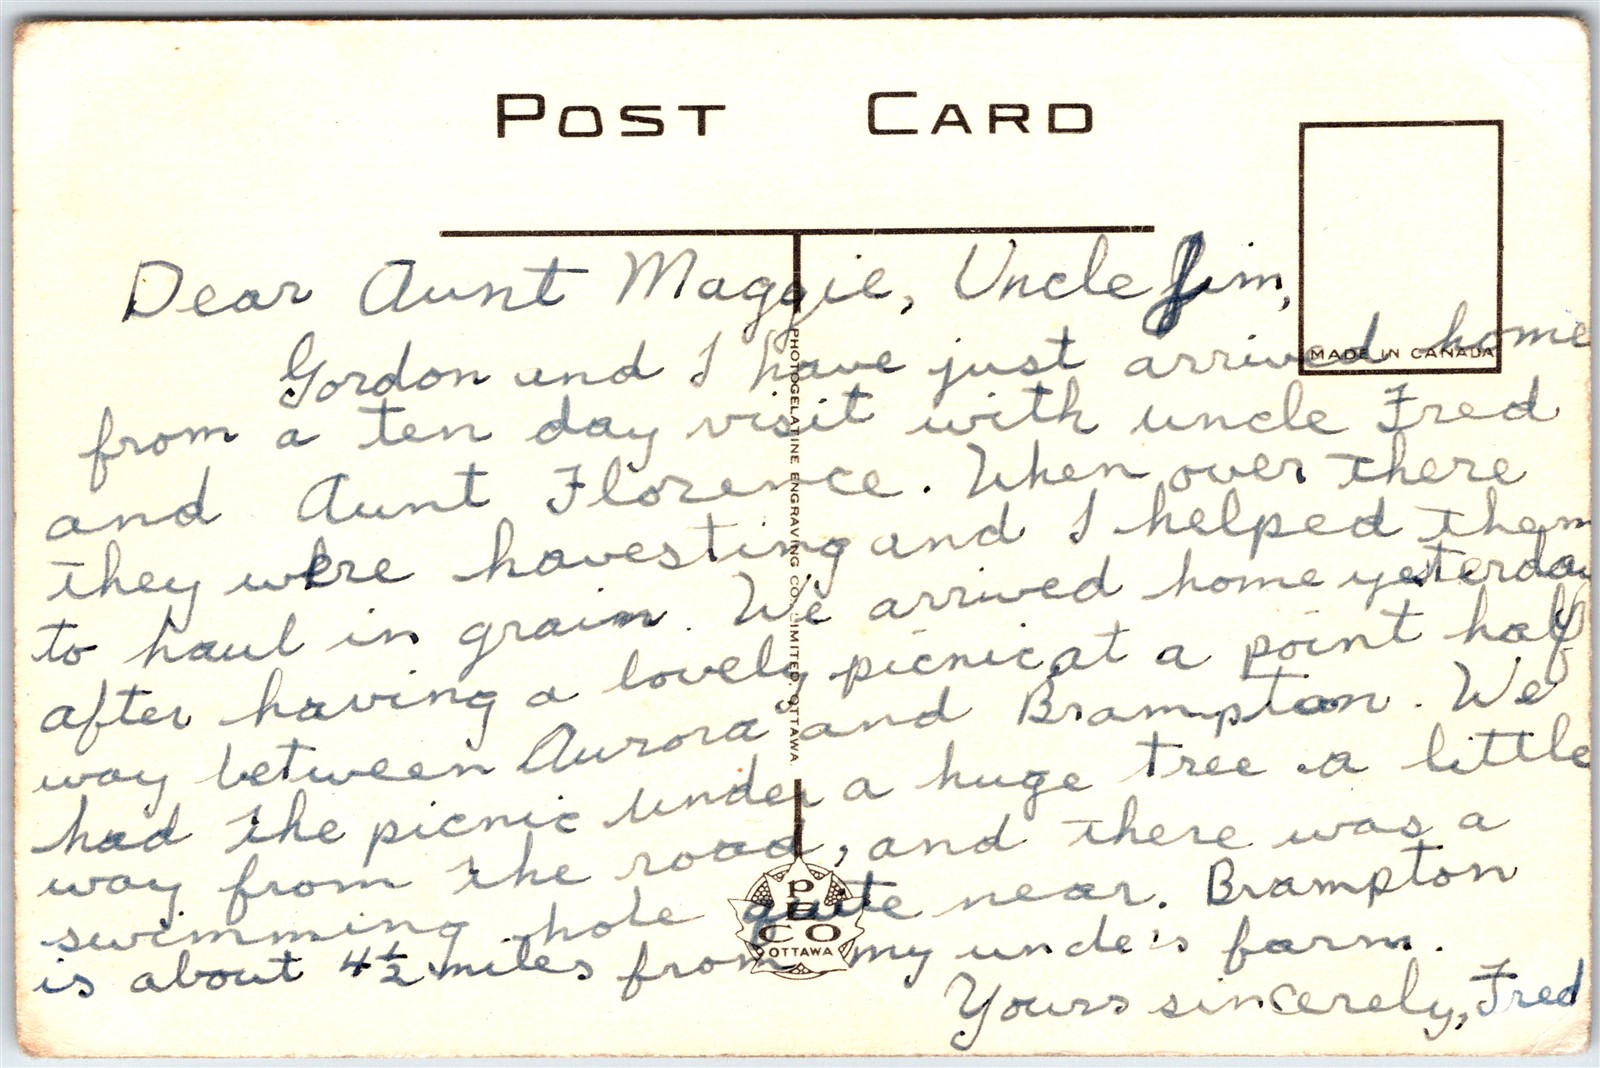 POST CARD
Dear Aunt Maggie, Uncle Jim,
Gordon and I have just arrived home
from a ten day visit with uncle Fred
and Aunt Florence. When over there
they were havesting and I helped them
to haul in grain. We arrived home yesterday
after having a lovely picnic at a point half
way between Aurora and Brampton. We
had the picnic under a huge tree a little
way from the road, and there was a
swimming hole quite near. Brampton
is about 4½ miles from my uncle's farm.
Yours sincerely, Fred
MADE IN CANADA
PHOTOGELATINE ENGRAVING CO. LIMITED, OTTAWA
PECO
OTTAWA